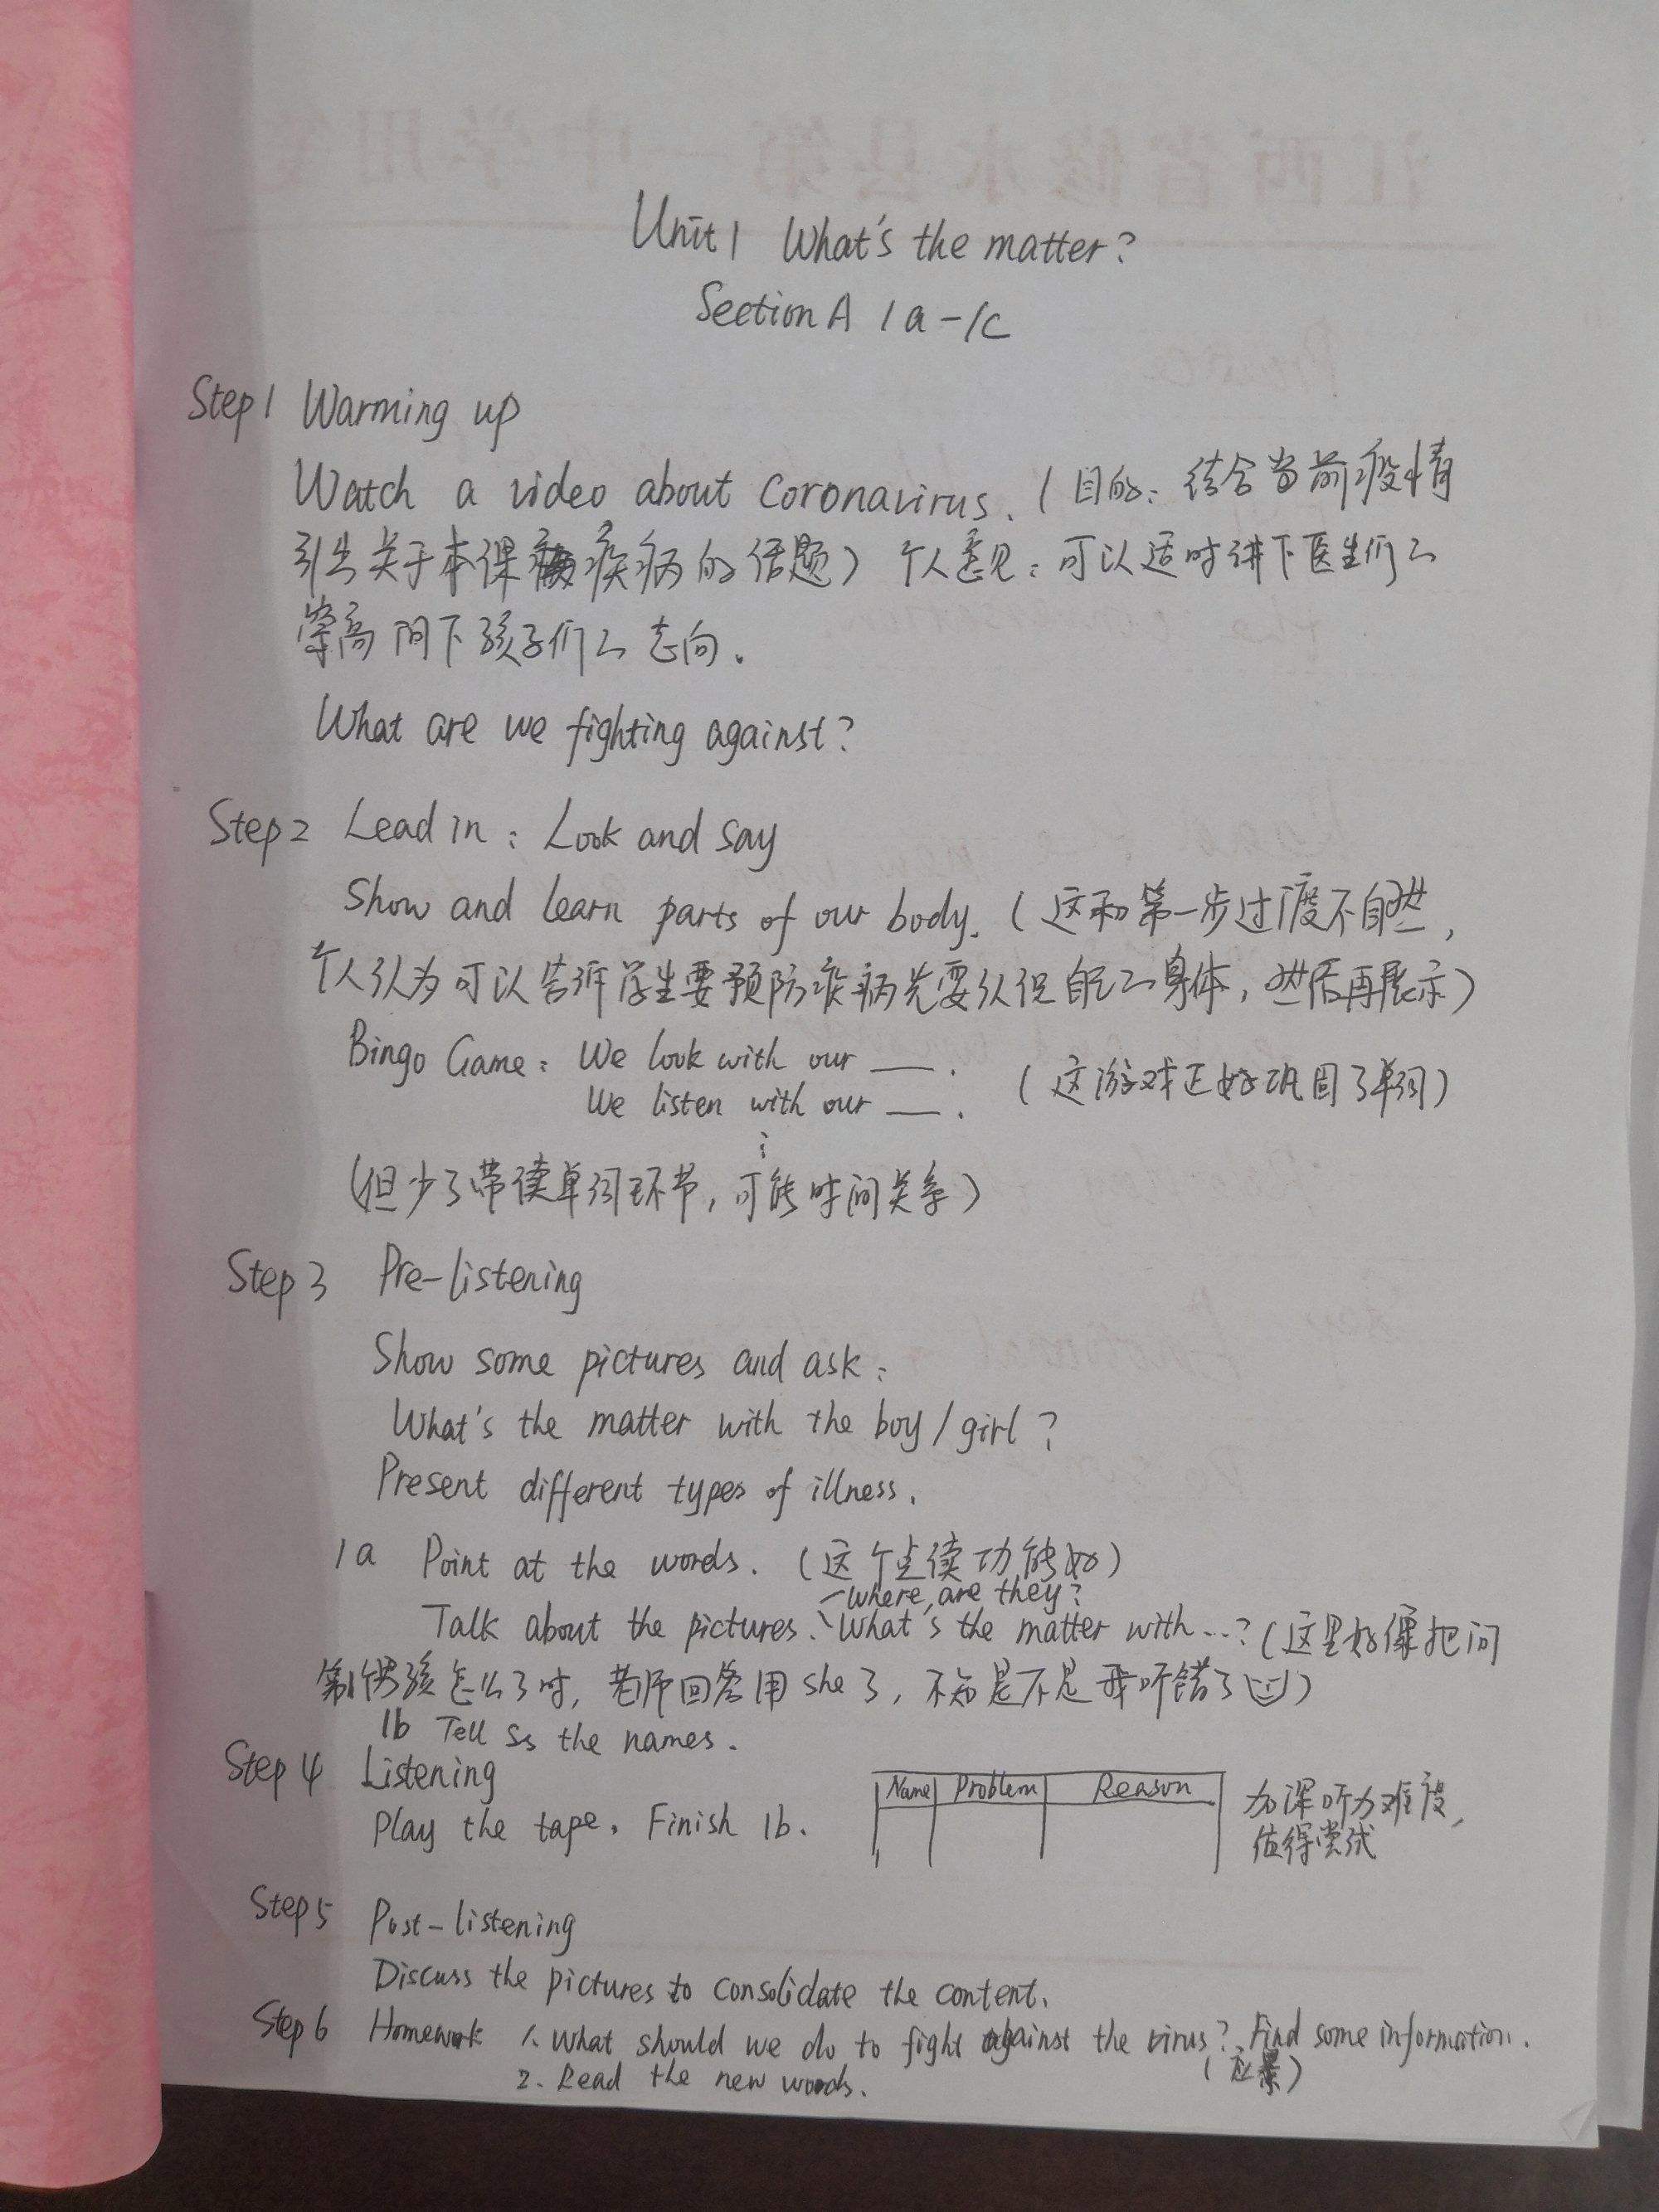 Unit 1 What's the matter?
Section A 1a-1c
Step 1 Warming up
Watch a video about Coronavirus. (目的：结合当前疫情
引出关于本课疾病的话题) 个人意见：可以适时讲下医生们的
崇高 问下孩子们的志向.
What are we fighting against?
Step 2 Lead in : Look and say
Show and learn parts of our body. (这和第一步过渡不自然,
个人认为可以告诉学生要预防疾病先要认识自己的身体, 然后再展示)
Bingo Game : We look with our ___. (这游戏正好巩固了单词)
We listen with our ___.
⋮
(但少了带读单词环节, 可能时间关系)
Step 3 Pre-listening
Show some pictures and ask :
What's the matter with the boy/girl ?
Present different types of illness.
1a Point at the words. (这个点读功能好)
- Where are they?
Talk about the pictures. - What's the matter with...? (这里好像把问
第1个男孩怎么了时, 老师回答用she了, 不知是不是我听错了)
1b Tell Ss the names.
Step 4 Listening
Name Problem Reason 加深听力难度,
Play the tape. Finish 1b. 值得尝试
Step 5 Post-listening
Discuss the pictures to consolidate the content.
Step 6 Homework 1. What should we do to fight against the virus? Find some information.
(应景)
2. Read the new words.